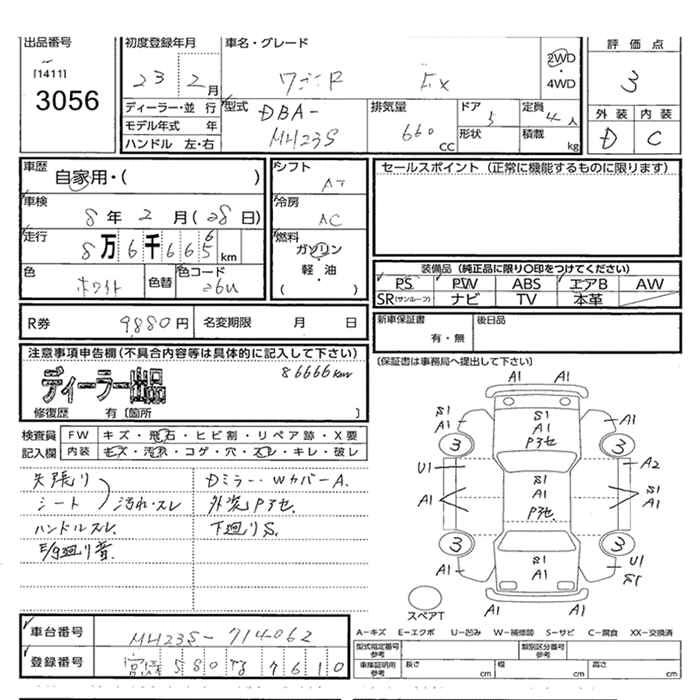 出品番号 初度登録年月 車名・グレード 評価点
[1411]
3056
23 2 月 ワゴンR FX 2WD ・ 4WD 3
ディーラー・並行 型式 DBA-MH23S 排気量 660 CC ドア 5 形状 定員 4 人 積載 kg 外装 内装
モデル年式 年 D C
ハンドル 左・右
車歴 自家用・( ) シフト AT セールスポイント (正常に機能するものに限ります)
車検 8 年 2 月 (28 日) 冷房 AC
走行 8 万 6 千 6 6 5 6 km 燃料 ガソリン 軽・油 ( )
色 ホワイト 色替 色コード 26U
装備品 (純正品に限り○印をつけてください)
PS PW ABS エアB AW
SR(サンルーフ) ナビ TV 本革
R券 9880 円 名変期限 月 日
新車保証書 有・無 後日品
(保証書は事務局へ提出して下さい)
注意事項申告欄(不具合内容等は具体的に記入して下さい)
ディーラー出品 86666km
修復歴 有 [箇所 ]
検査員 FW キズ・飛石・ヒビ割・リペア跡・X要
記入欄 内装 キズ・汚れ・コゲ・穴・スレ・キレ・破レ
天張り
シート 汚れ・スレ
ハンドルスレ
E/g廻り音.
Dミラー・WカバーA.
外装Pヌセ.
下廻りS.
A1 A1
S1 A1 S1 A1 Pヌセ A1
3 3
U1 A2
A1 S1 A1 Pヌセ S1 A1
3 3
A1 S1 A1 U1 S1
A1 A1
スペアT
車台番号 MH23S-714062
登録番号 宮崎 580 7610
A-キズ E-エクボ U-凹み W-補修跡 S-サビ C-腐食 XX-交換済
型式指定番号 参考 類別区分番号 参考
車庫証明用 参考 長さ cm 幅 cm 高さ cm